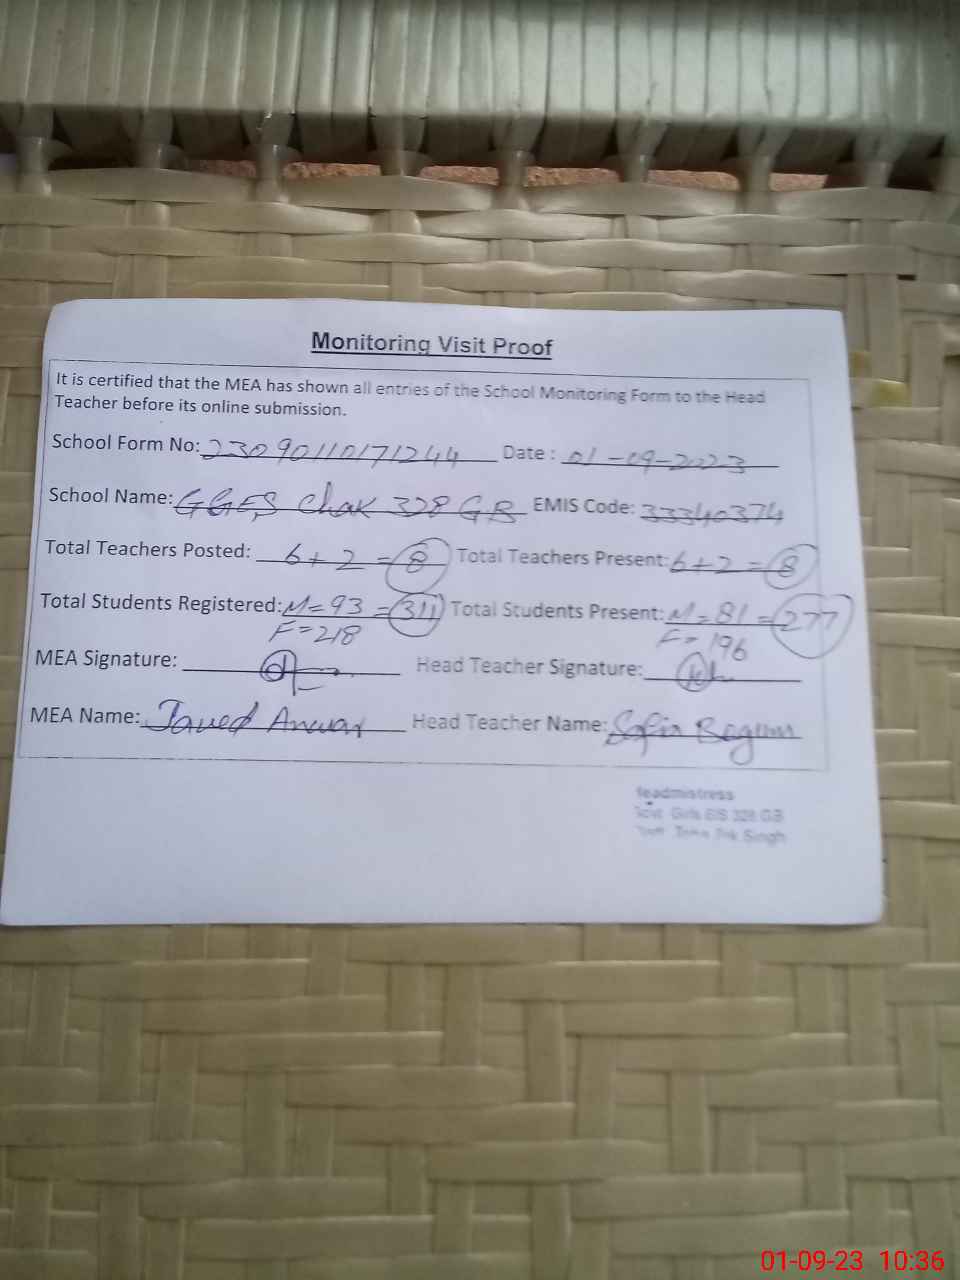 Monitoring Visit Proof
It is certified that the MEA has shown all entries of the School Monitoring Form to the Head
Teacher before its online submission.
School Form No: 2309011017 1244 Date : 01-09-2023
School Name: GGES Chak 328 GB EMIS Code: 33340374
Total Teachers Posted: 6+2=8 Total Teachers Present: 6+2=8
Total Students Registered: M=93 =311 Total Students Present: M=81=277
F=218 F=196
MEA Signature: Head Teacher Signature:
MEA Name: Javed Anwar Head Teacher Name: Sofia Begum
Headmistress
Govt Girls E/S 328 GB
Singh
01-09-23 10:36